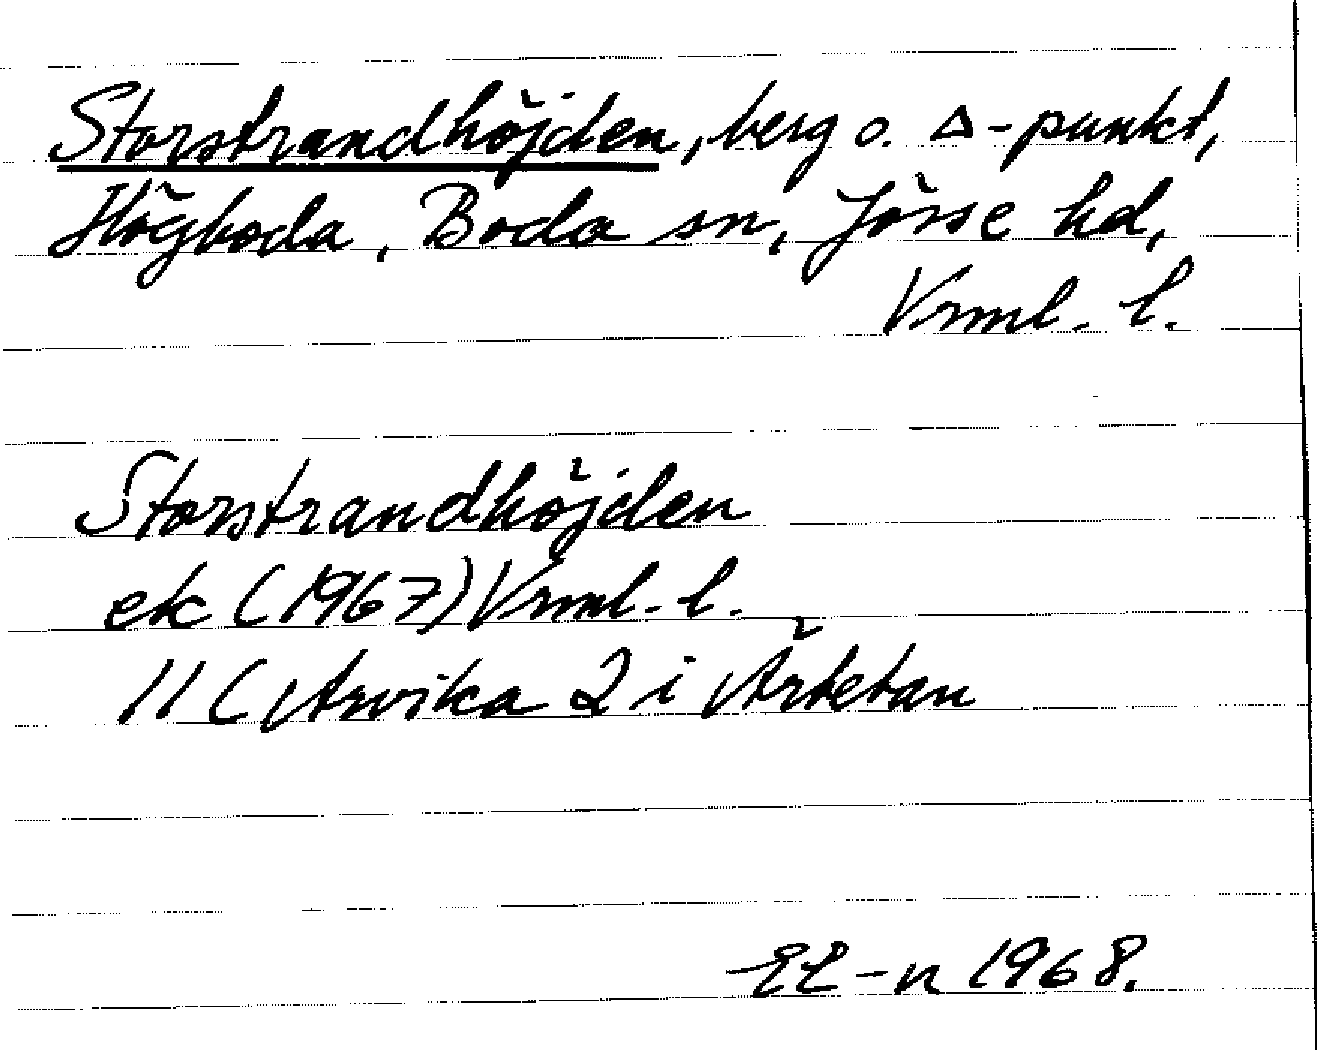 Storstrandhöjden, berg o. Δ-punkt,
Högboda, Boda sn, Jösse hd,
Vrml. l.
Storstrandhöjden
ek (1967) Vrml. l.
11 C Arvika 2 i Årtetan
EL-n 1968.